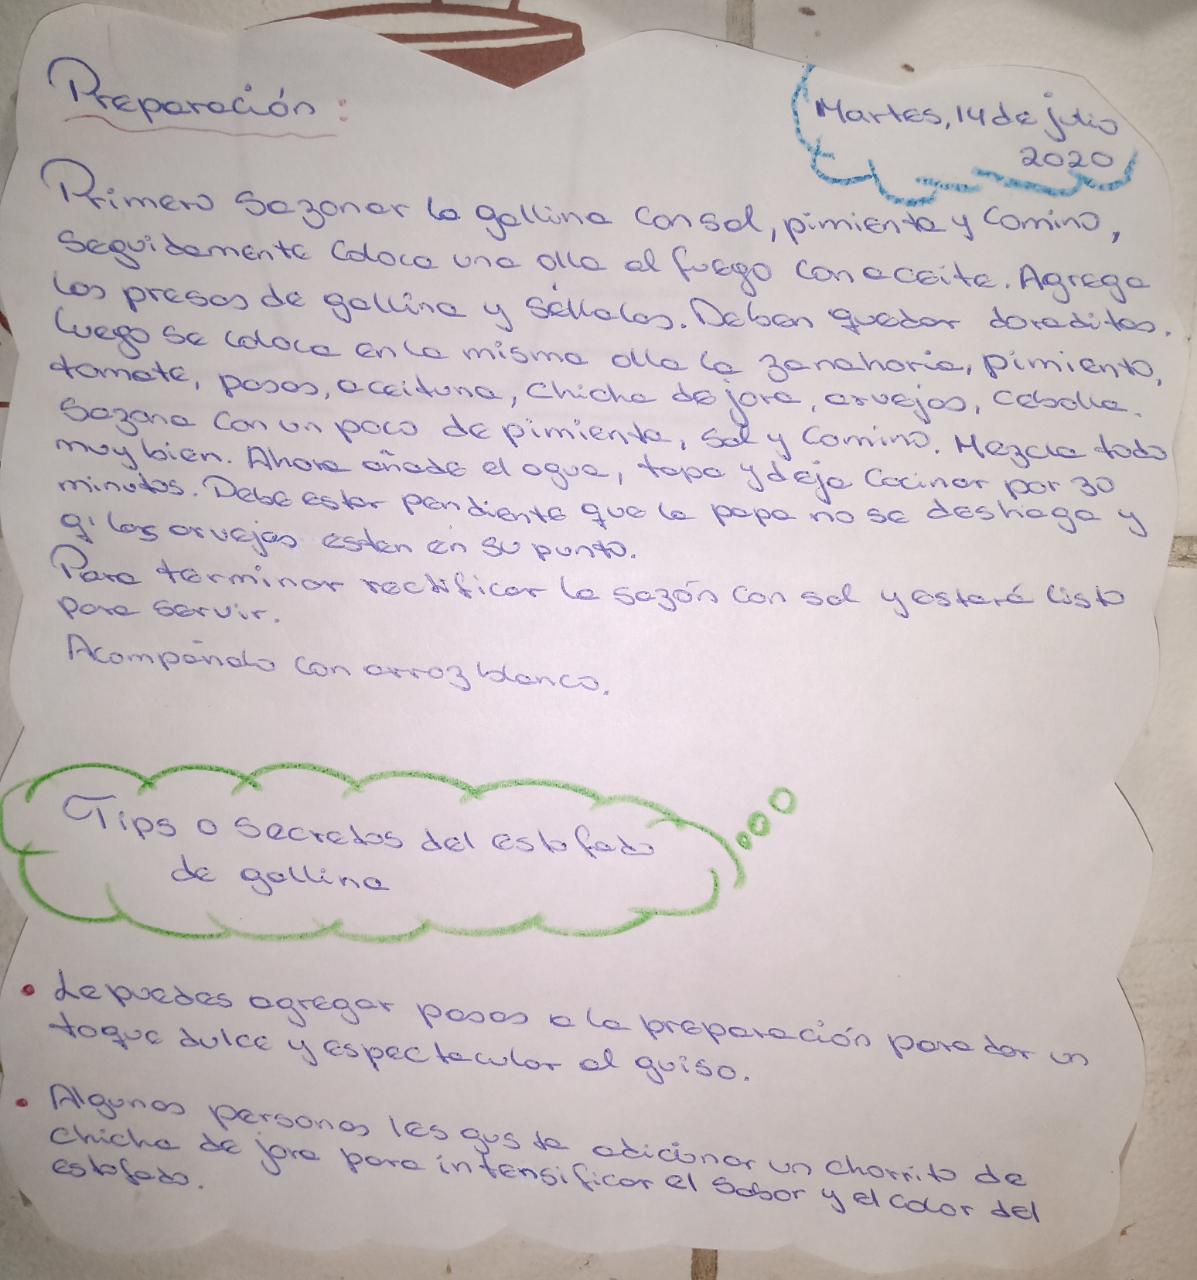 Preparación:
Martes, 14 de julio
2020
Primero Sazonar la gallina con sal, pimienta y Comino,
Seguidamente Coloca una olla al fuego con aceite. Agrega
las presas de gallina y séllalas. Deben quedar doraditas.
Luego se coloca en la misma olla la zanahoria, pimiento,
tomate, pasas, aceituna, Chicha de jora, arvejas, Cebolla.
Sazona Con un poco de pimienta, Sal y Comino. Mezcla todo
muy bien. Ahora añade el agua, tapa y deja Cocinar por 30
minutos. Debe estar pendiente que la papa no se deshaga y
q' las arvejas esten en su punto.
Para terminar rectificar la sazón con sal y estará listo
para servir.
Acompáñalo con arroz blanco.
Tips o Secretos del estofado
de gallina
• Le puedes agregar pasas a la preparación para dar un
toque dulce y espectacular al guiso.
• Algunas personas les gusta adicionar un chorrito de
chicha de jora para intensificar el Sabor y el color del
estofado.